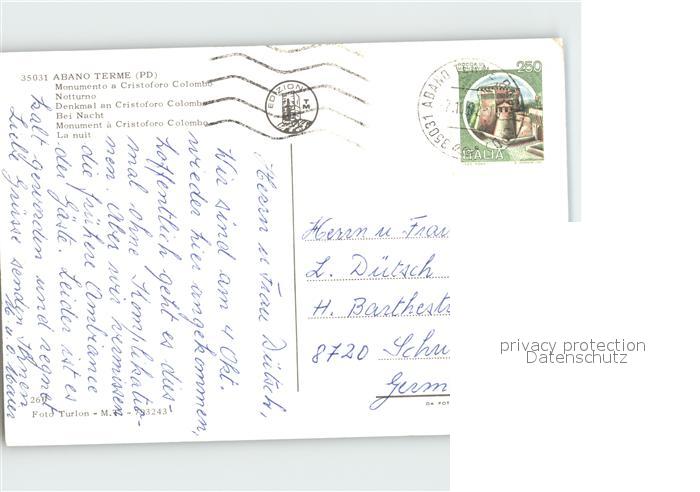 35031 ABANO TERME (PD)
Monumento a Cristoforo Colombo
Notturno
Denkmal an Cristoforo Colombo
Bei Nacht
Monument à Cristoforo Colombo
La nuit
EDIZIONI
TM
35031 ABANO
250
ITALIA
Herrn u Frau Dütsch,
Wir sind am 4 Okt.
wieder hier angekommen,
hoffentlich geht es dies-
mal ohne Komplikatio-
nen. Aber wir vermissen
die frühere Ambiance
der Gäste. Leider ist es
kalt geworden und regnet
Liebe Grüsse senden Ihnen
Herrn u Frau
L. Dütsch
H. Barthestr
8720 Schw
Germ
26
Foto Turlon - M.T. - 793243
privacy protection
Datenschutz